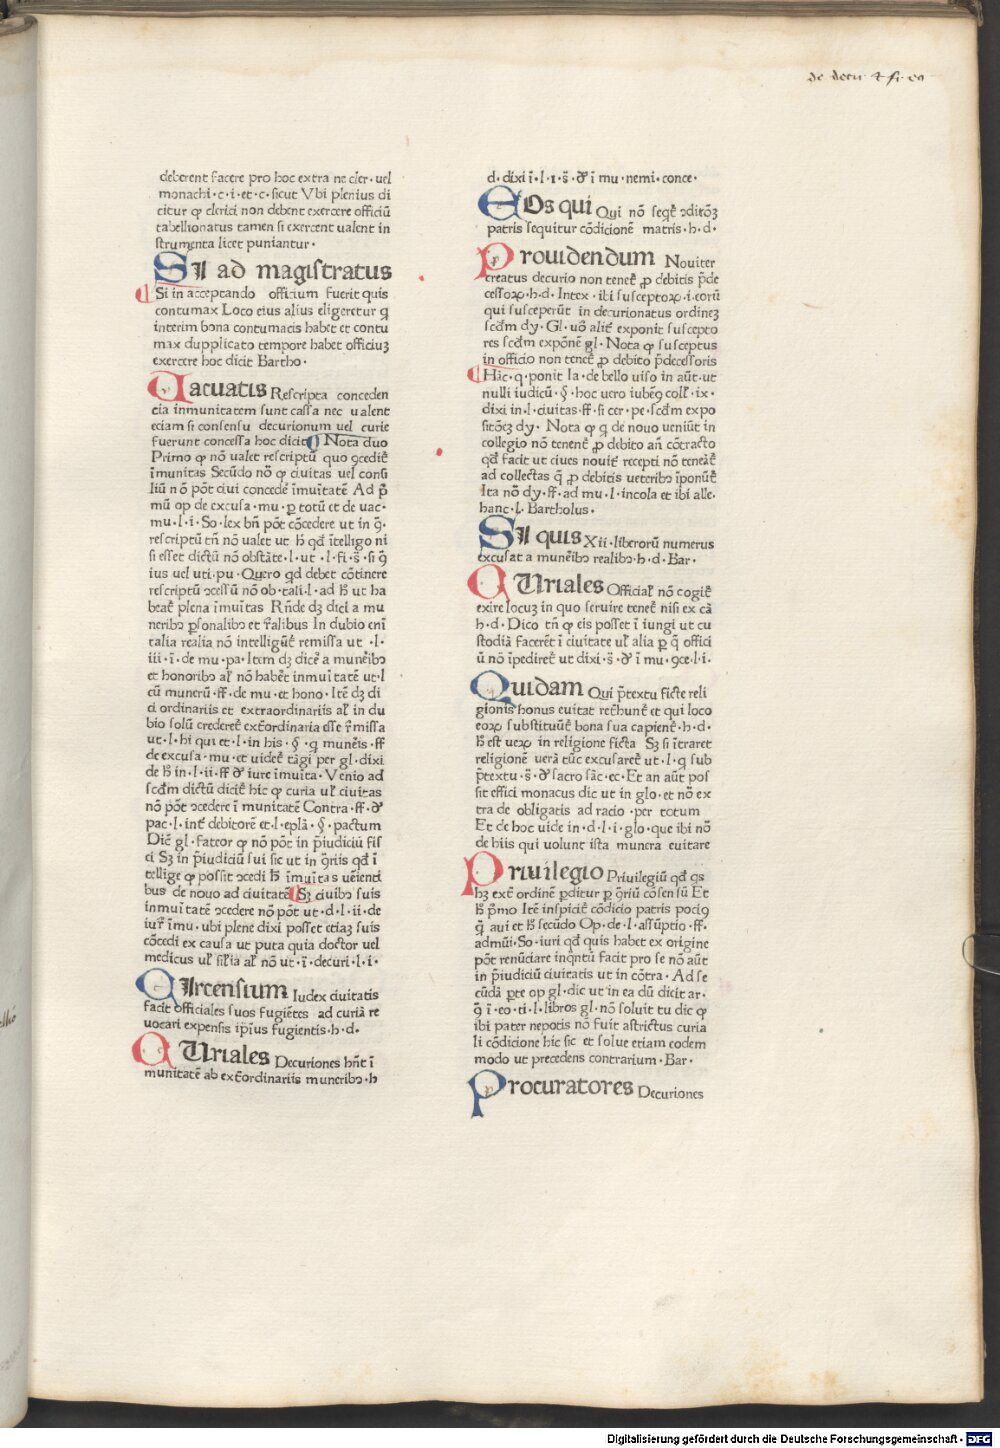 de decu. ⁊ fi. eo
deberent facere pro hoc extra ne cler· uel
monachi·c·i·et·c·sicut Vbi plenius di
citur ꝙ clerici non debent exercere officiū
tabellionatus tamen si exercent ualent in
strumenta licet puniantur·
SI ad magistratus
Si in acceptando officium fuerit quis
contumax Loco eius alius eligeretur q̄
interim bona contumacis habet et contu
max dupplicato tempore habet officiuꝫ
exercere hoc dicit Bartho·
Vacuatis Rescripta conceden
cia inmunitatem sunt cassa nec ualent
eciam si consensu decurionum uel curie
fuerunt concessa hoc dicit Nota duo
Primo ꝙ nō ualet rescriptū quo ꝯcedit̄
īmunitas Secūdo nō ꝙ ciuitas uel consi
liū nō pōt ciui concede᷑ īmuītatē Ad p̄
mū op de excusa·mu·ꝑ totū et de uac·
mu·l·i·So·lex bn̄ pōt cōcedere ut in q̄·
rescriptū tn̄ nō ualet ut ħ qd̄ ītelligo ni
si esset dictū nō obstāte·l·ut·l·fi·s̄·si q̄
ius uel uti·pu·Quero qd debet cōtinere
rescriptū ꝯcessū nō ob·tali·l·ad ħ ut ha
beat̄ plena īmuītas Rn̄de dꝫ dici a mu
neribꝰ ꝑsonalibꝰ et r̄alibus In dubio eni᷑
talia realia nō intelligūt̄ remissa ut·l·
iii·ī·de mu·pa·Item dꝫ dice᷑ a munēibꝰ
et honoribꝰ al᷑ nō habet̄ inmuītatē ut·l
cū munerū·ff·de mu·et hono·Itē dꝫ di
ci ordinariis et extraordinariis al᷑ in du
bio solū crederet̄ extͣordinaria esse r̄missa
ut·l·hi qui et·l·in his·§·q̄ munēis·ff
de excusa·mu·et uidet̄ tāgi per gl·dixi
de ħ in·l·ii·ff de iure īmuīta·Venio ad
scd̄m dictū dicit̄ hic ꝙ curia ul᷑ ciuitas
nō pōt ꝯcedere ī munitatē Contra·ff·de
pac·l·int̄ debitorē et·l·epl̄a·§·pactum
Dic̄ gl·fateor ꝙ nō pōt in p̄iudiciū fis
ci Sꝫ in p̄iudiciū sui sic ut in q̄riis qd̄ ī
tellige ꝙ possit ꝯcedi ħ īmuītas ueīenci
bus de nouo ad ciuitatē Sꝫ ciuibꝰ suis
inmuītatē ꝯcedere nō pōt ut·d·l·ii·de
iur᷑ īmu·ubi plene dixi posset etiaꝫ suis
cōcedi ex causa ut puta quia doctor uel
medicus ul᷑ sil̄ia al᷑ nō ut·ī·decuri·l·i·
CIrcensium Iudex ciuitatis
facit officiales suos fugiētes ad curiā re
uocari expensis ip̄ius fugientis·h·d·
CUriales Decuriones hn̄t ī
munitatē ab extͣordinariis muneribꝰ·h
d·dixi ī·l·1·s̄·de ī mu·nemi·conce·
EOs qui Qui nō seqt̄ ꝯditōꝫ
patris sequitur cōdicionē matris·h·d·
Prouidendum Nouiter
creatus decurio non tenet̄ ꝓ debitis p̄de
cessoꝝ·h·d·Intex·ibi susceptoꝝ·i·eorū
qui susceperūt in decurionatus ordineꝫ
scd̄m dy·Gl·uō alit̄ exponit suscepto
res scd̄m expōnē gl·Nota ꝙ susceptus
in officio non tenet̄ ꝓ debito p̄decessoris
Hāc·q·ponit Ia·de bello uiso in aūt·ut
nulli iudicū·§·hoc uero iubēꝰ coll᷑·ix·
dixi in·l·ciuitas·ff·si cer·pe·scd̄m expo
sitōeꝫ dy· Nota ꝙ q̄ de nouo ueniūt in
collegio nō tenent̄ ꝓ debito an̄ cōtracto
qd̄ facit ut ciues nouit̄ recepti nō teneāt̄
ad collectas q̄ ꝓ debitis ueteribꝰ īponūt̄
Ita nō dy·ff·ad mu·l·incola et ibi alle·
hanc·l·Bartholus·
SI quis Xii·liberorū numerus
excusat a munēibꝰ realibꝰ·h·d·Bar·
CUriales Official᷑ nō cogit̄
exire locuꝫ in quo seruire tenet̄ nisi ex cā
h·d·Dico tn̄ ꝙ eis posset ī iungi ut cu
stodiā faceret̄ ī ciuitate ul᷑ alia ꝑ q̄ offici
ū nō īpediret̄ ut dixi·s̄·de ī mu·ꝯce·l·i·
Quidam Qui p̄textu ficte reli
gionis honus euitat retͣhunt̄ et qui loco
eoꝝ substituūt̄ bona sua capient̄·h·d·
ħ est ueꝝ in religione ficta Sꝫ si ītraret
religionē uerā tūc excusaret̄ ut·l·q̄ sub
p̄textu·s̄·de sacro sāc·ec·Et an aūt pos
sit effici monacus dic ut in glo·et nō ex
tra de obligatis ad racio·per totum
Et de hoc uide in·d·l·i·glo·que ibi nō
de hiis qui uolunt ista munera euitare
Priuilegio Priuilegiū qd̄ qs
hꝫ extͣ ordinē ꝑditur ꝑ q̄riū cōsensū Et
ħ p̄mo Itē inspicit̄ cōdicio patris pociꝰ
q̄ aui et ħ secūdo Op·de·l·assūptio·ff·
admūi·So·iuri qd̄ quis habet ex origine
pōt renūciare inqn̄tū facit pro se nō aūt
in p̄iudiciū ciuitatis ut in cōtra·Ad se
cūdā ꝑte op gl·dic ut in ea dū dicit ar·
q̄ ī·eo·ti·l·libros gl·nō soluit tu dic ꝙ
ibi pater nepotis nō fuit astrictus curia
li cōdicione hic sic et solue etiam eodem
modo ut precedens contrarium·Bar·
Procuratores Decuriones
Digitalisierung gefördert durch die Deutsche Forschungsgemeinschaft - DFG